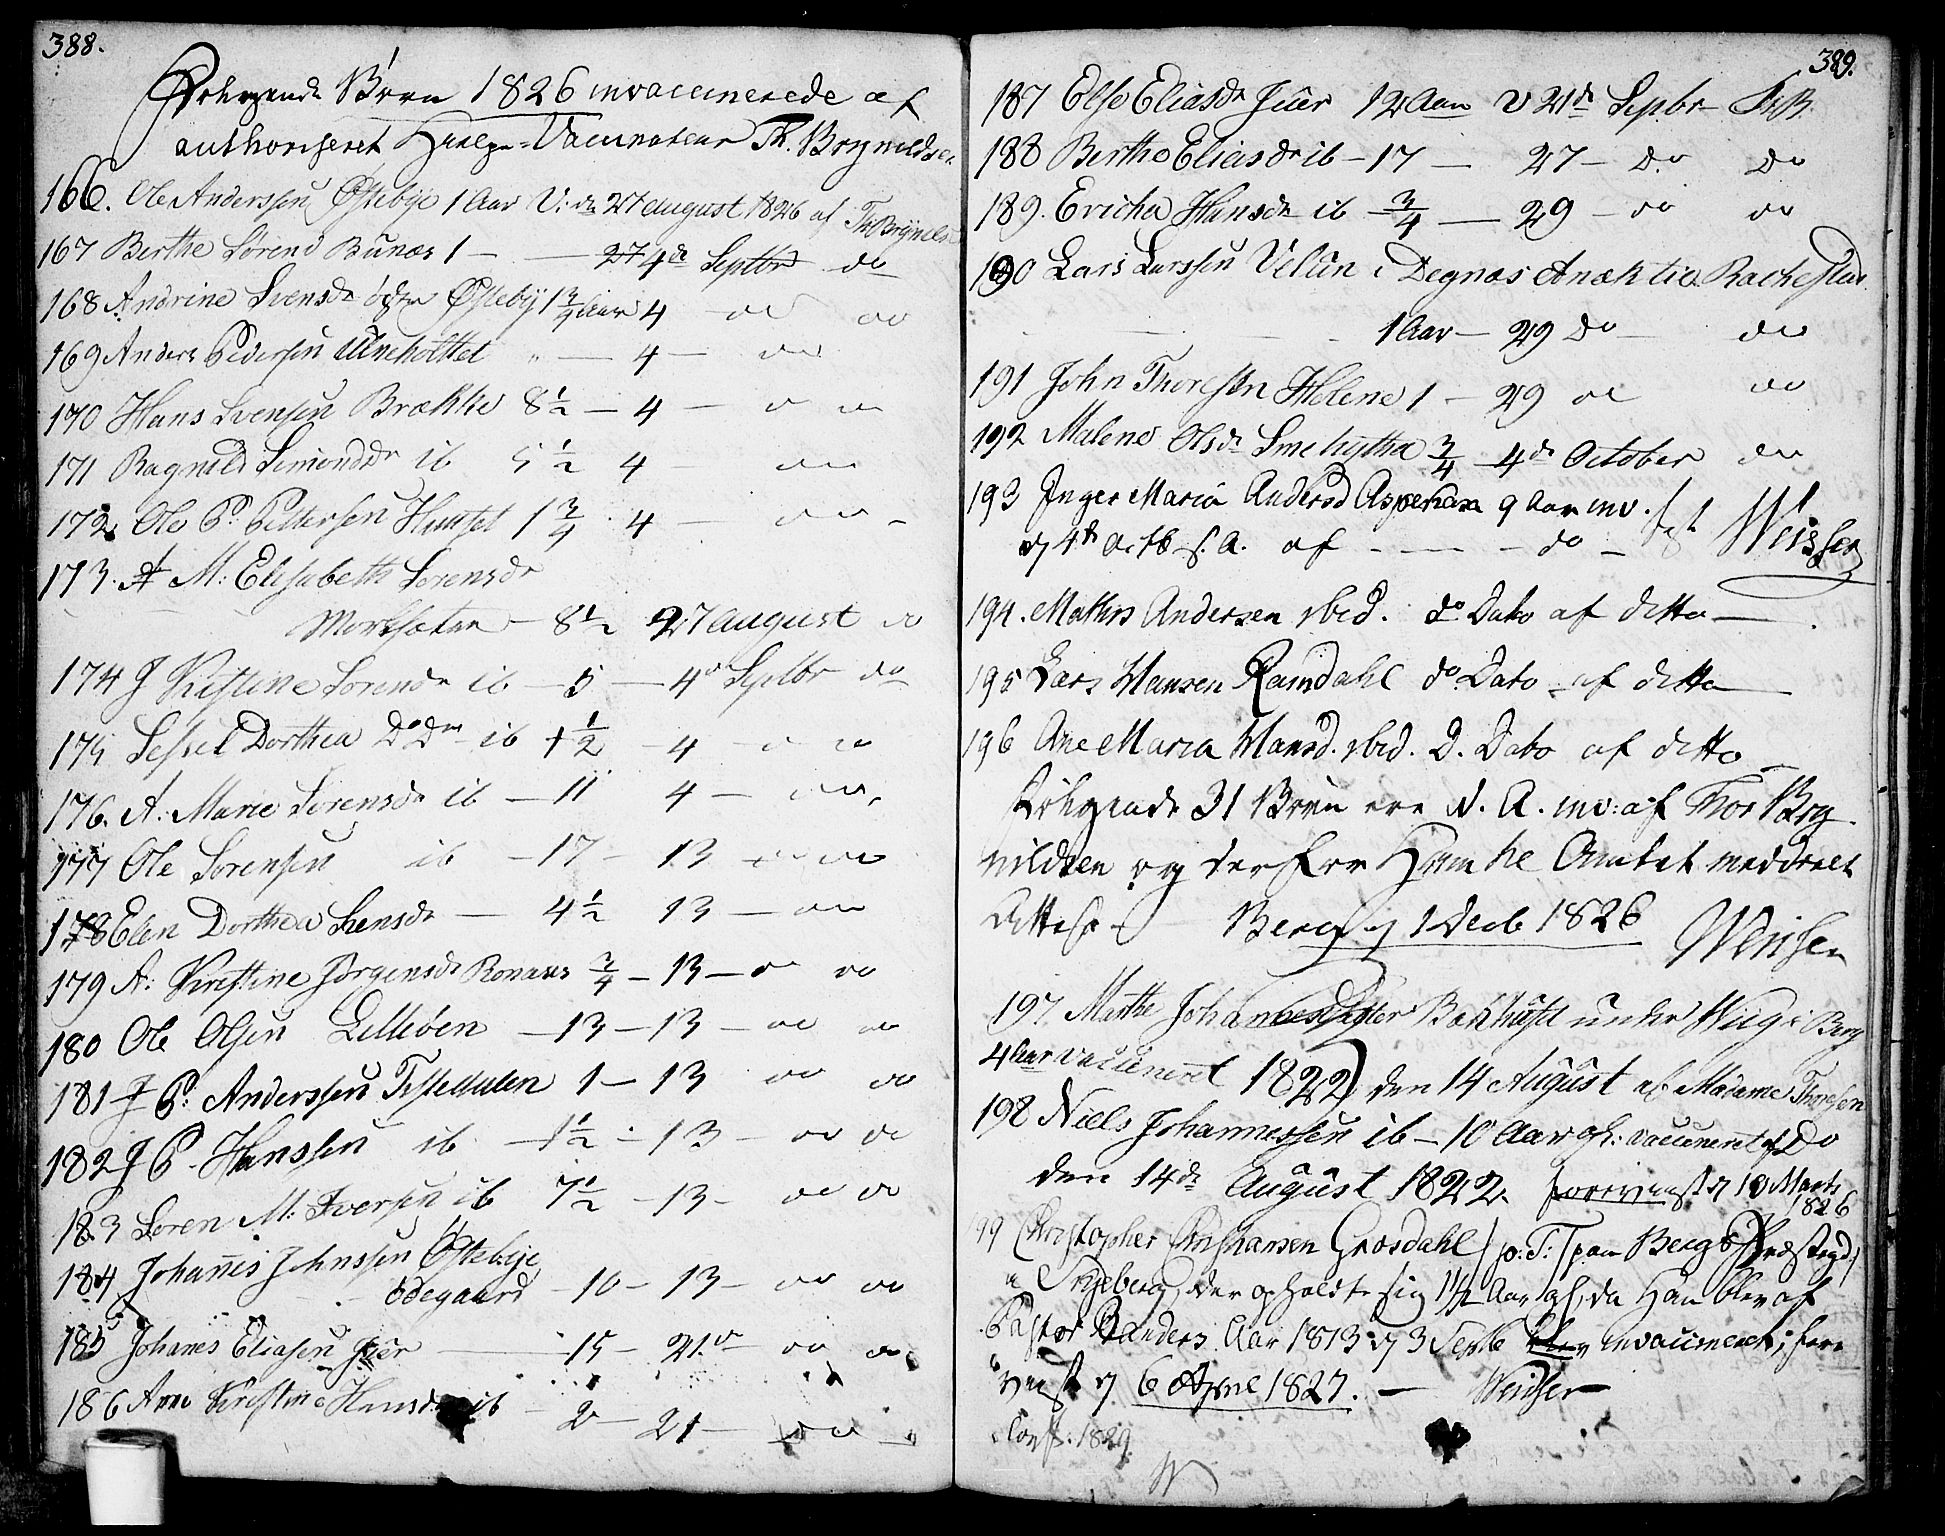 388.
Følgende Børn 1826 invaccinerede af
authoriseret Hielpe-Vaccinateur Th. Brynildsen
166. Ole Anderssen Østebye 1 Aar V: d. 27 august 1826 af Th Brynilds
167 Berthe Sørensd Bunæs 1 - - 27 4de Septbr do
168 Andrine Svensd Østebÿ 1 3/4 Aar 4 - do do
169 Anders Pedersen Ulneholttet " - 4 - do
170 Hans Svensen Brække 8 1/2 - 4 - do
171 Ragnild Simonsdr ib 5 1/2 4 - do
172. Ole P. Pettersen Huuset 1 3/4 . 4 - do -
173. A M: Elisabeth Sorensdr
Morksæter - 8 1/2 27 August do
174 J Kistine Sorensdr ib - 5 - 4de Septbr do
175 Sessel Dorthea Do Dr ib 1 1/2 - 4 - do
176. A. Marie Sørensdr ib - 11 4 - do.
177 Ole Sorensen ib - 17 - 13 - do
178 Elen Dorthea Svensdr - 4 1/2 13 - do
179 A: Kirstine Jørgensdr Ronæs 3/4 - 13 - do do
180 Ole Olsen Lilleøen - 13 - 13 - do do
181 J P: Anderssen Tistedalen 1 - 13 do do
182 J P. Hanssen ib - 1 1/2 - 13 - do do
183 Soren M: Iversen ib 7 1/2 - 13 - do do
184 Johanes Johnssen Østebye
ødegaard - 10 - 13 - do do
185 Johanes Eliasen Juer - 15 - 21. do do
186 Ane Kirestine Hansdr ib - 2 - 21 - do
389.
187 Else Eliasdr Juer 12 Aar V 21de Sepbr ThB.
188 Berthe Eliasdr ib - 17 - 27 - do do
189. Ericha Hansdr ib - 3/4 - 29 - do do
190 Lars Larssen Velun i Degnæs Anæktie Rachestad
1 Aar - 29 do - do
191 John Thoresen Helene 1 - 29 do do
192 Malene Olsdr Smehytha 3/4 - 4de October do
193 Inger Maria Andersd Asperhan 9 Aar inv.
d 4de Octb s. A. af - - - do - Weisser
194. Mathis Andersen ibid. do Dato af ditto -
195 Lars Hansen Ramdahl do Dato af ditto -
196 Ane Maria Hansd. ibid. D. Dato af ditto
Følgende 31 Børn ere d. A. inv: af Thor Bry-
nildsen og derfor Amtet meddeelt
Attest - Berg d 1 Decb 1826 Weisser
197. Mathe Johannesdatter Bakhuset under Wiig i Berg
4 Aar vaccineret 1822 den 14 August af Madame Thoresen
198 Niels Johannessen ib - 10 Aar gl: vaccineret af Do
den 14de August 1822. foreviist d 10 Marts
1826
199 Christopher Christiansen Grosdahl p: T: paa Bergs Præstegd,
a , der opholdt sig 1 1/2 Aar gl, da Han blev af
Pastor Randers Aar 1813 d 3 Septb blev invaccineret; fore
viist d 6 April 1827. - Weisser
Conf: 1829.
W